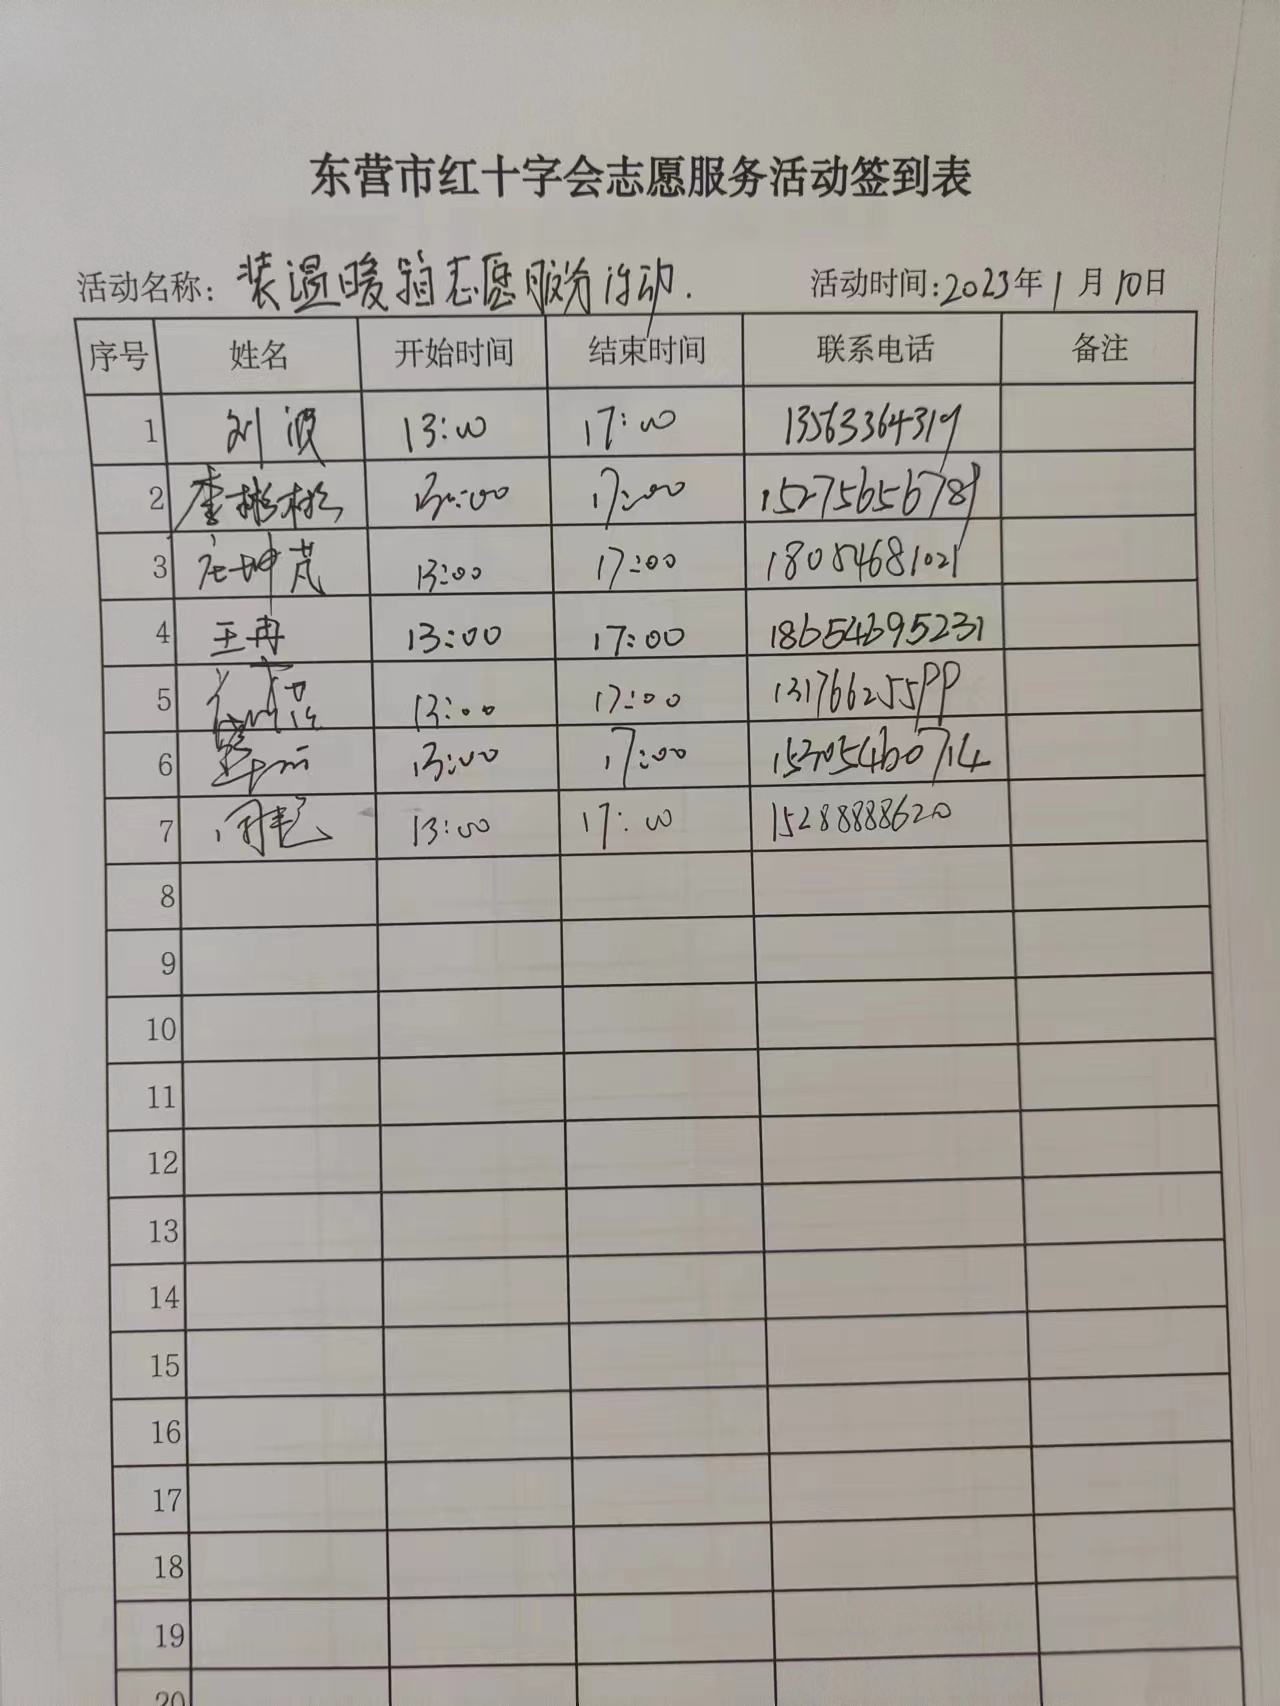 东营市红十字会志愿服务活动签到表
活动名称: 装温暖箱志愿服务活动.
活动时间:2023年1月10日
序号 姓名 开始时间 结束时间 联系电话 备注
1 刘波 13:00 17:00 13563364319
2 李彬彬 13:00 17:00 15275656789
3 庄坤芃 13:00 17:00 18054681021
4 王冉 13:00 17:00 18654695231
5 13:00 17:00 131766255PP
6 13:00 17:00 15305460714
7 13:00 17:00 15288888620
8
9
10
11
12
13
14
15
16
17
18
19
20